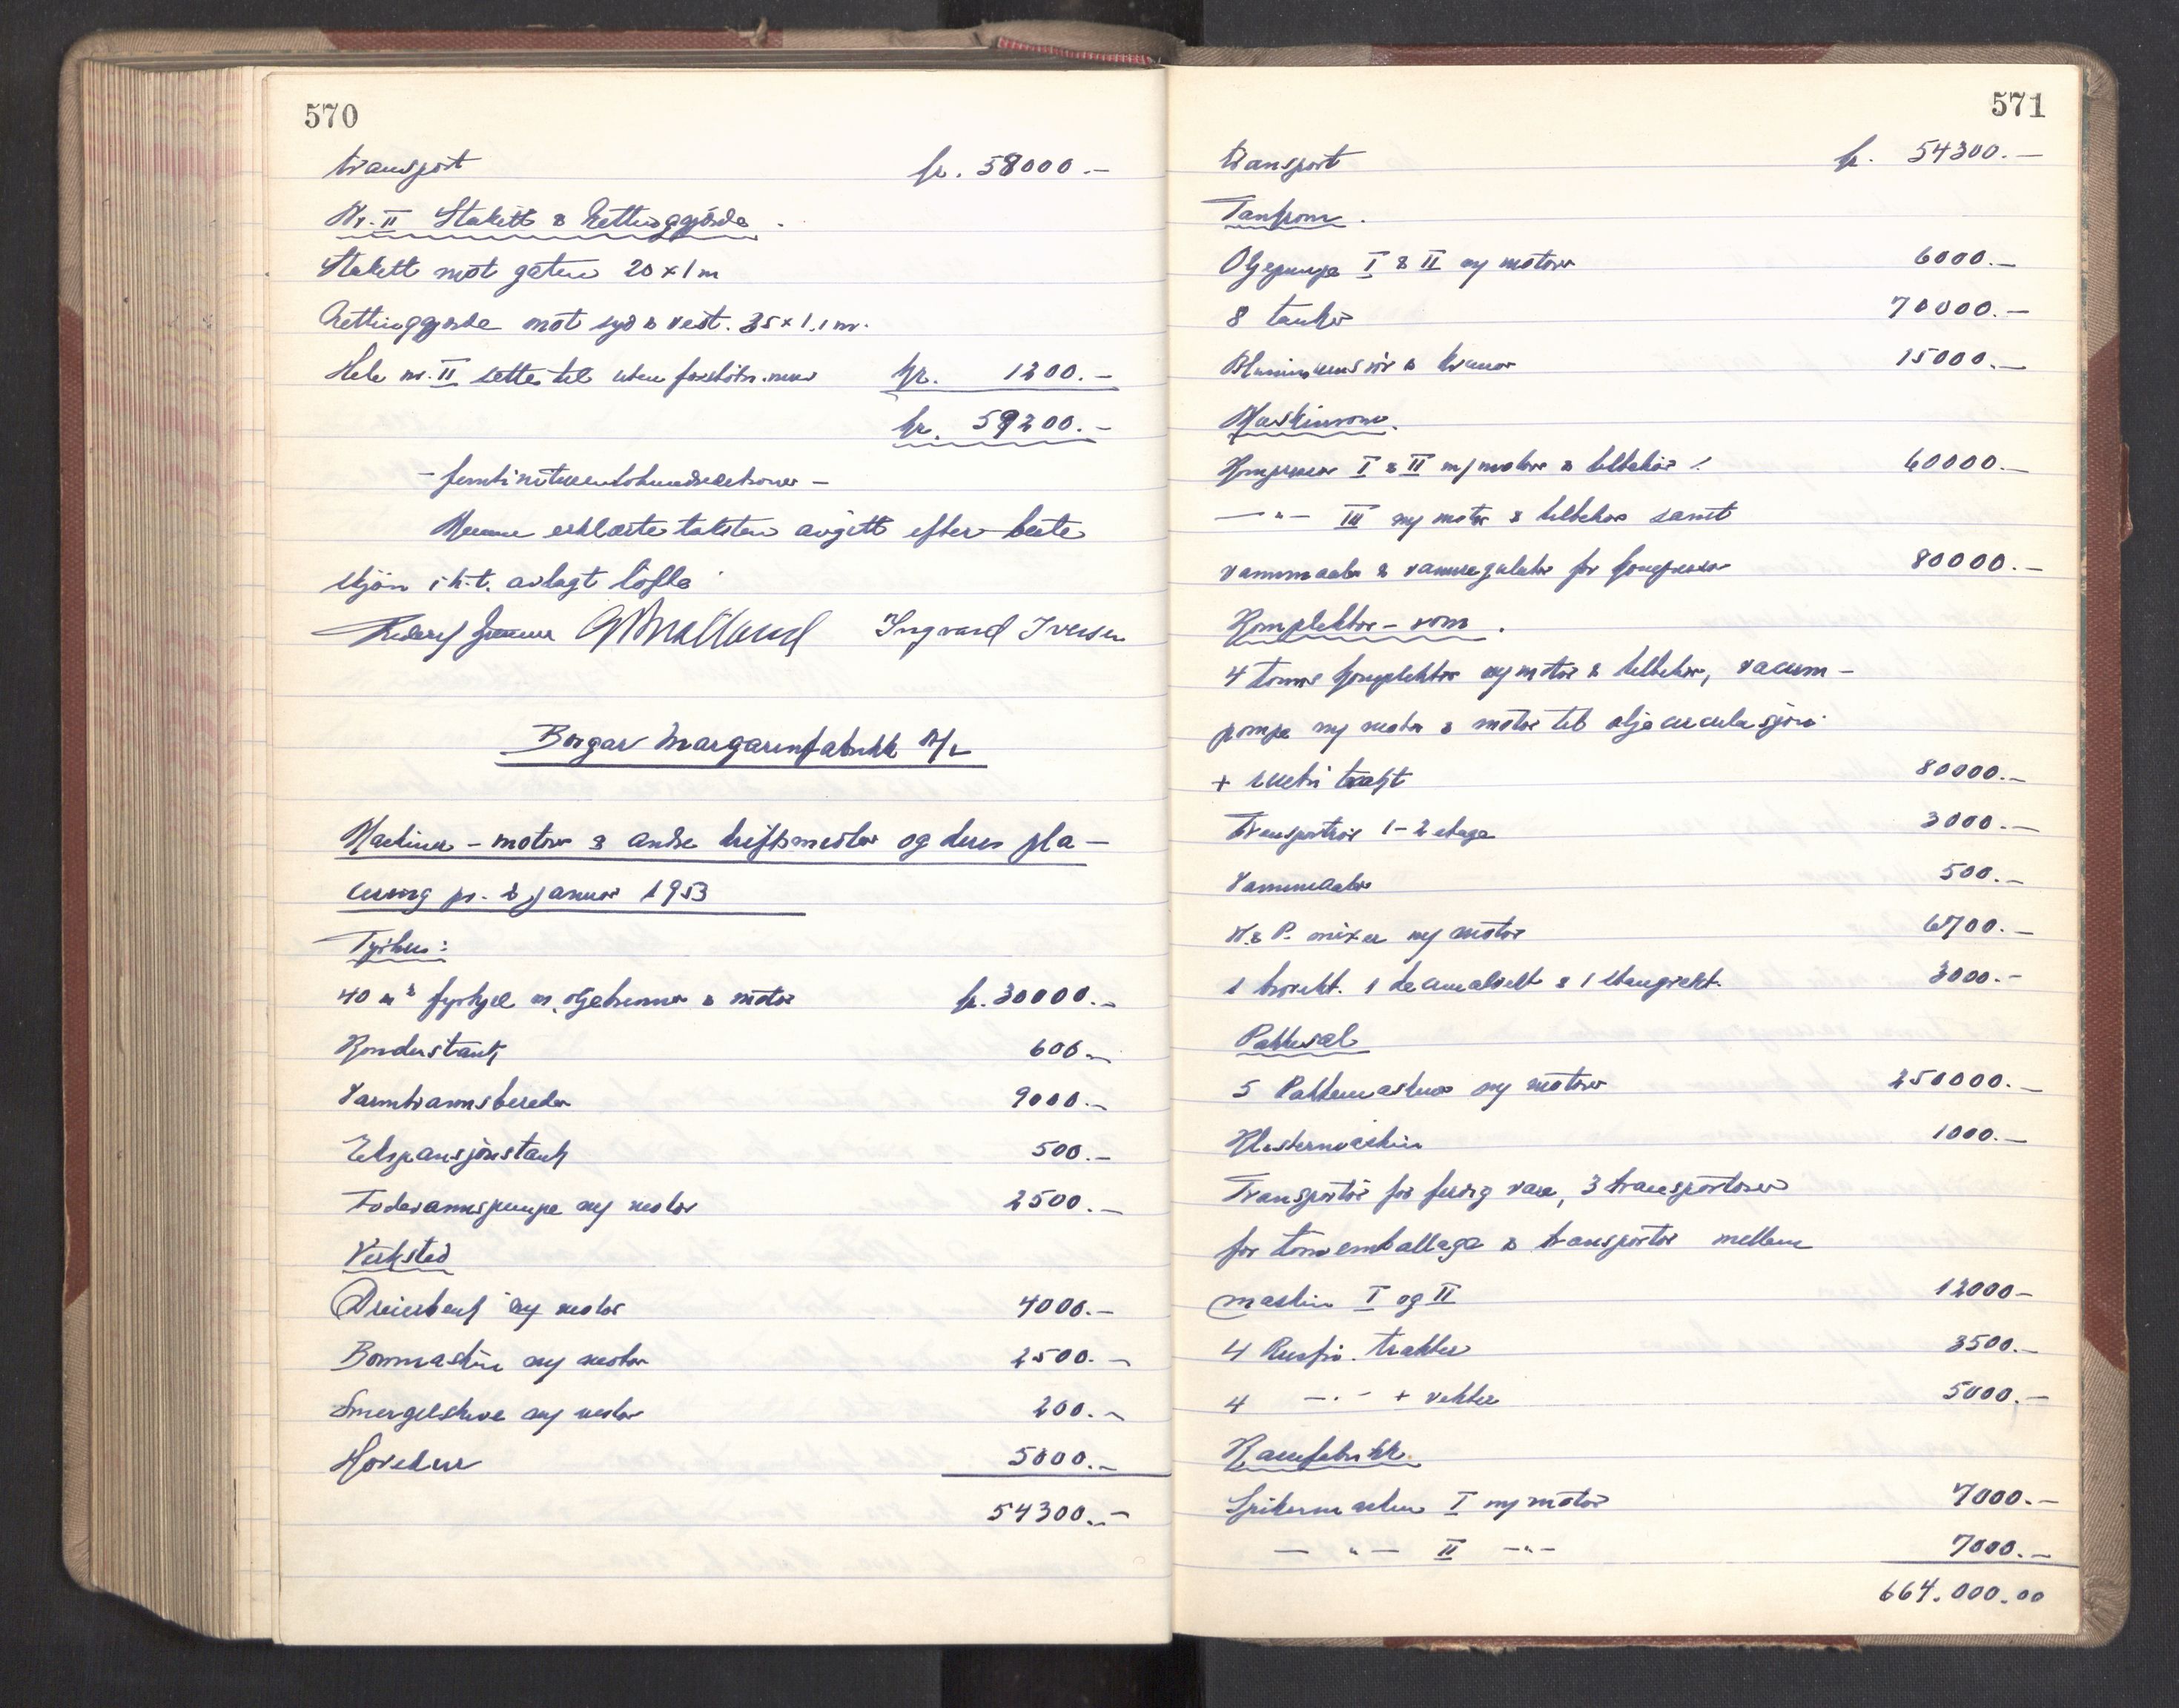 570
transport kr. 58000.-
Nr. II Stakitt & Nettinggjerde.
Stakitt mot gaten 20 x 1 m
Nettinggjerde mot syd & vest. 35 x 1.1 m.
Hele nr. II settes til uten forstøtn.mur kr. 1200.-
kr. 59200.-
- femtinitusentohundredekroner -
Menne erklærte taksten avgitt efter beste
skjön i h.t. avlagt löfte
Ingvard Iversen
Borgar Margarinfabrikk A/S
Maskiner - motorer & andre driftsmidler og deres pla-
cering pr. 2 januar 1953
Fyrhus:
40 m² fyrkjel m. oljebrenner & motor kr. 30000.-
Kondenstank 600.-
Varmtvannsbereder 9000.-
Ekspansjonstank 500.-
Fødevannspumpe m/ motor 2500.-
Verksted
Dreiebenk m/ motor 4000.-
Boremaskin m/ motor 2500.-
Smergelskive m/ motor 200.-
5000.-
54300.-
571
transport kr. 54300.-
Tankrom.
Oljepumpe I & II m/ motorer 6000.-
8 tanker 70000.-
Aluminiumsrör & kraner 15000.-
Maskinrom.
Kompressor I & II m/ motorer & tilbehör 60000.-
-"- III m/ motor & tilbehör samt
vannmaaler & vannregulator for kompressor 80000.-
Komplektor-rom.
4 tonns komplektor m/ motor & tilbehör, vacum-
pumpe m/ motor & motor til oljecirculasjon
+ trakt 80000.-
Transportör 1-2 etage 3000.-
Vannmaaler 500.-
W. & P. mixer m/ motor 6700.-
1 bordvekt. 1 decimalvekt & 1 stangvekt. 3000.-
Pakkesal
5 Pakkemaskiner m/ motorer 250000.-
Klistermaskin 1000.-
Transportör for ferdig vare, 3 transportörer
for tomemballage & transportör mellem
maskin I og II 12000-
4 Rustfri. trakter 3500.-
4 -.- + vekter 5000.-
Kassefabrikk.
Spikermaskin I m/ motor 7000.-
-"- II -"- 7000.-
664.000.00